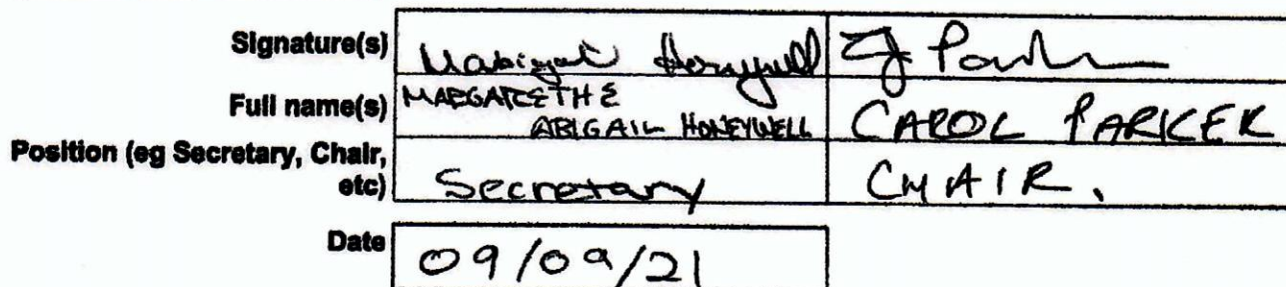 Signature(s) Mabigail Honeywell
Full name(s) MARGARETHE ABIGAIL HONEYWELL CAROL PARKER
Position (eg Secretary, Chair, etc) Secretary CHAIR.
Date 09/09/21